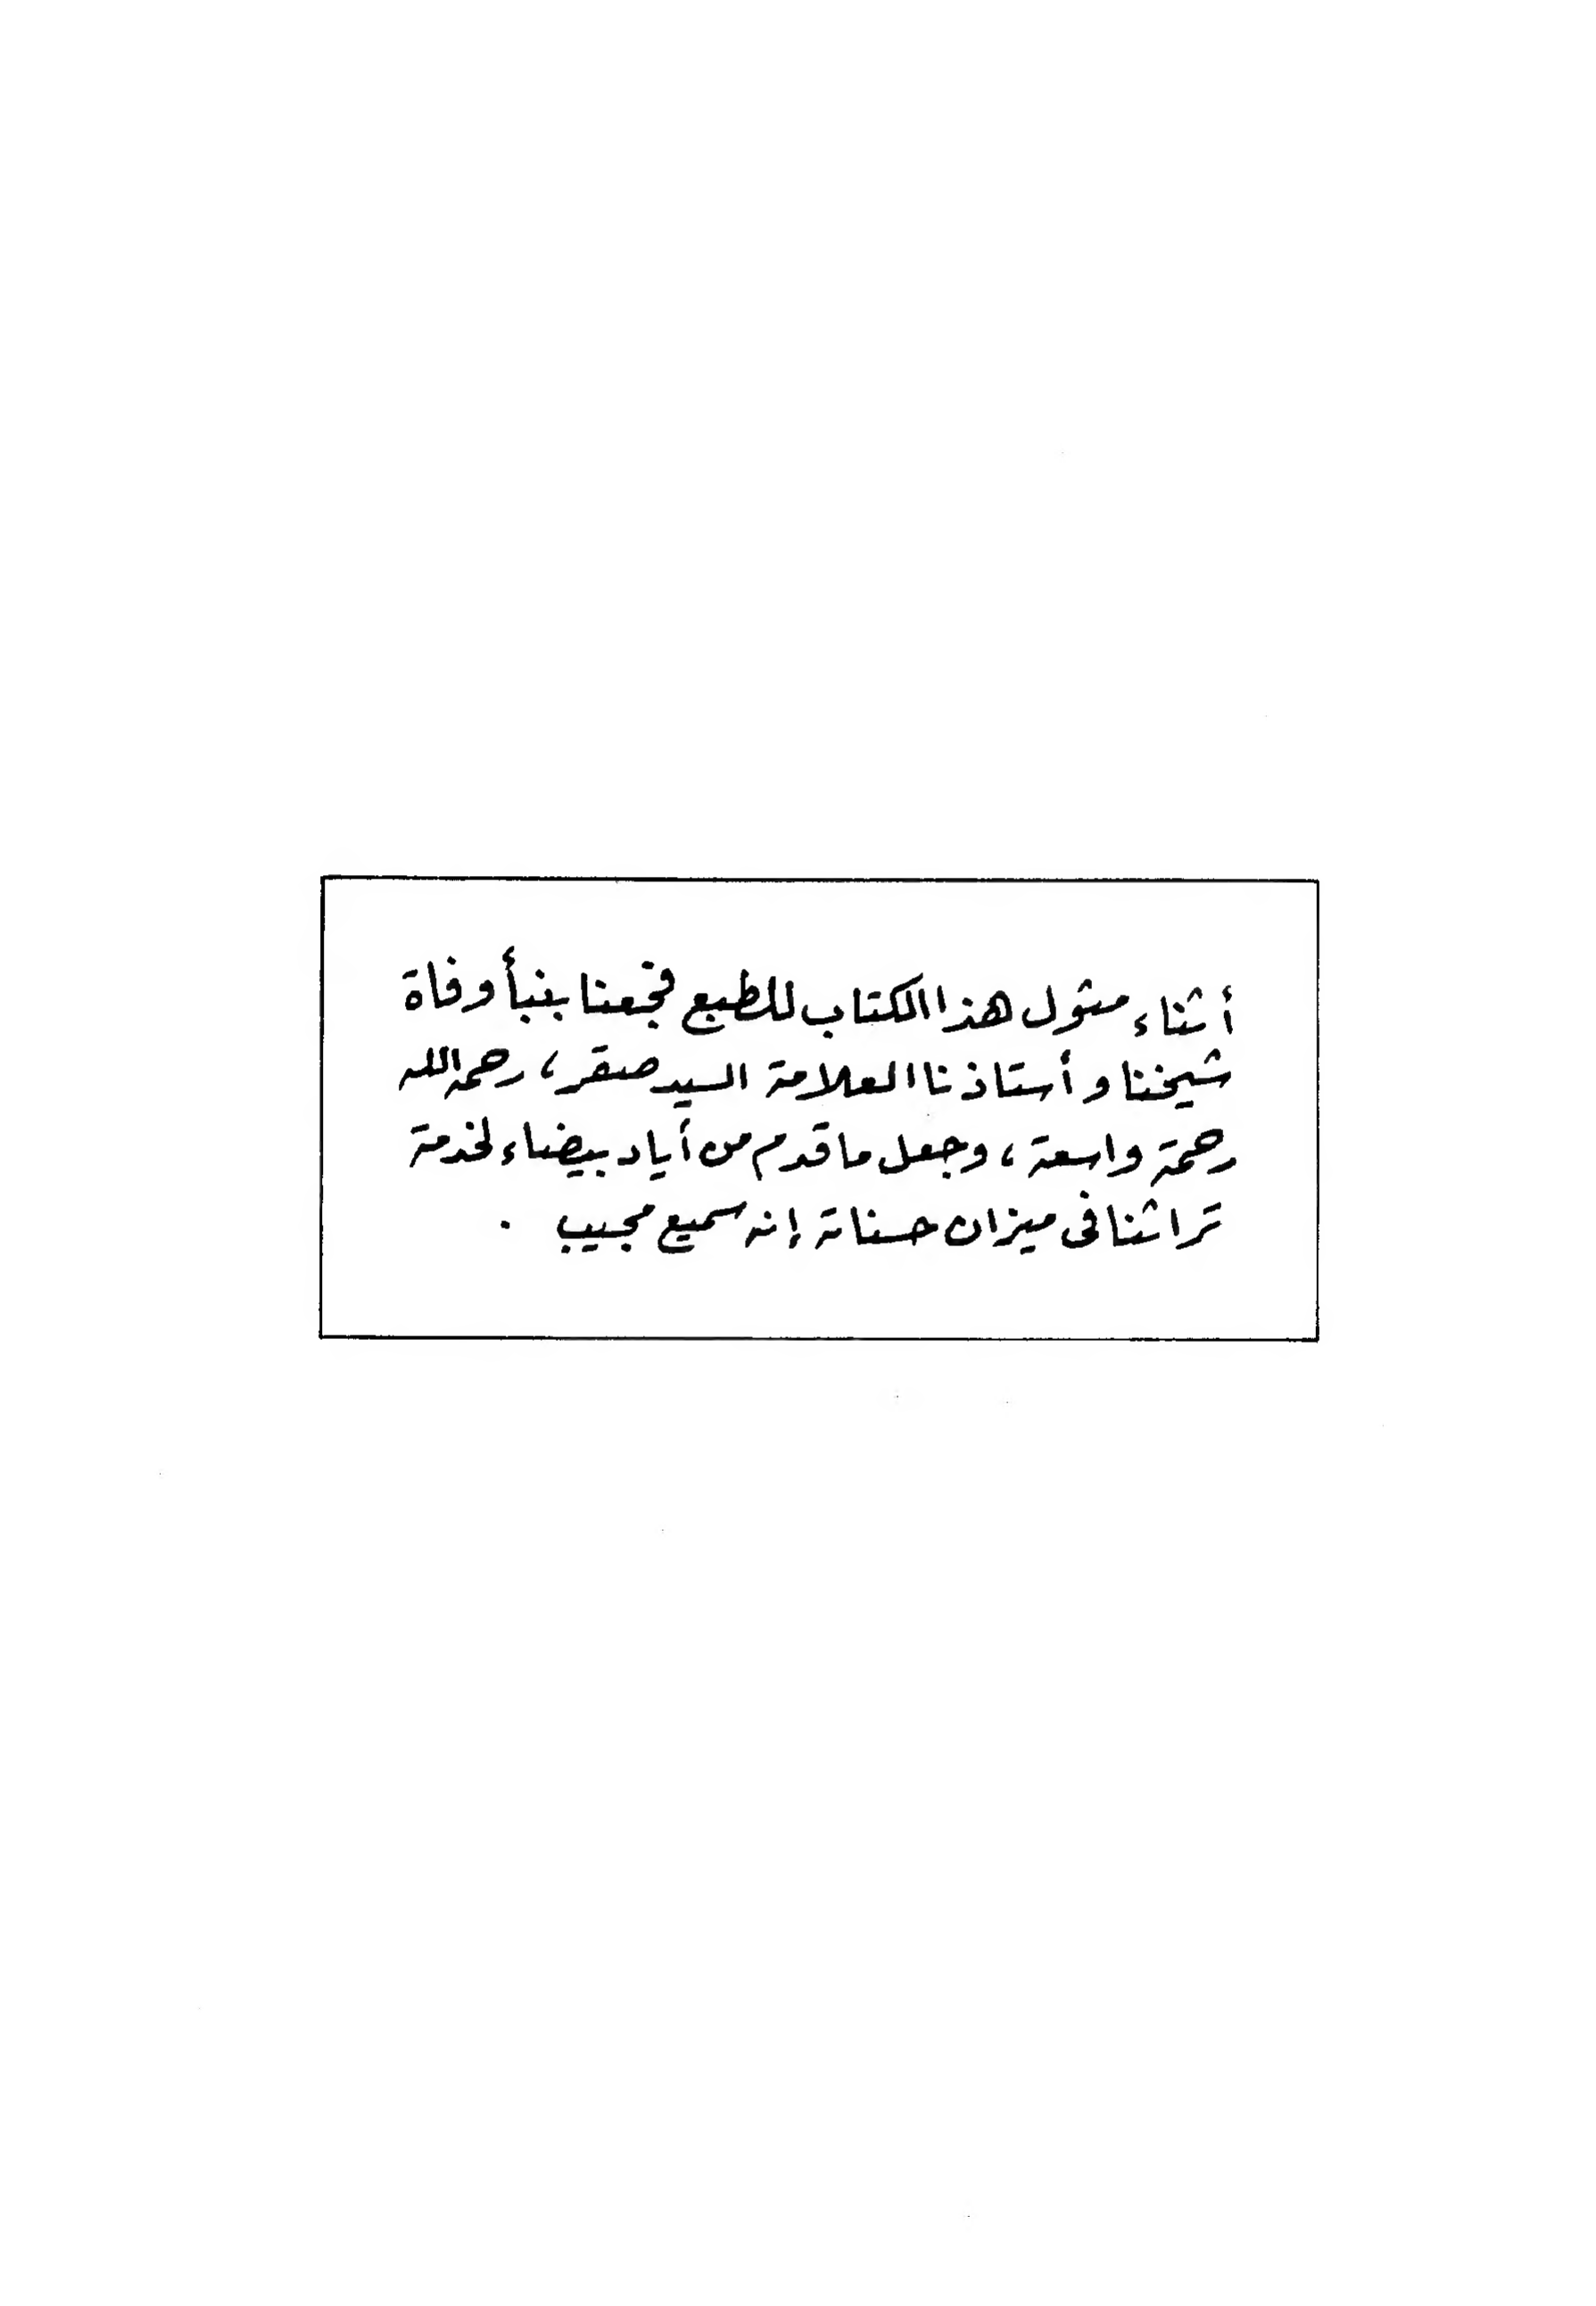 أثناء مثول هذا الكتاب للطبع فجعنا بنبأ وفاة
شيخنا وأستاذنا العلامة السيد صقر، رحمه الله
رحمة واسعة، وجعل ما قدم من أياد بيضاء لخدمة
تراثنا فى ميزان حسناته إنه سميع مجيب .